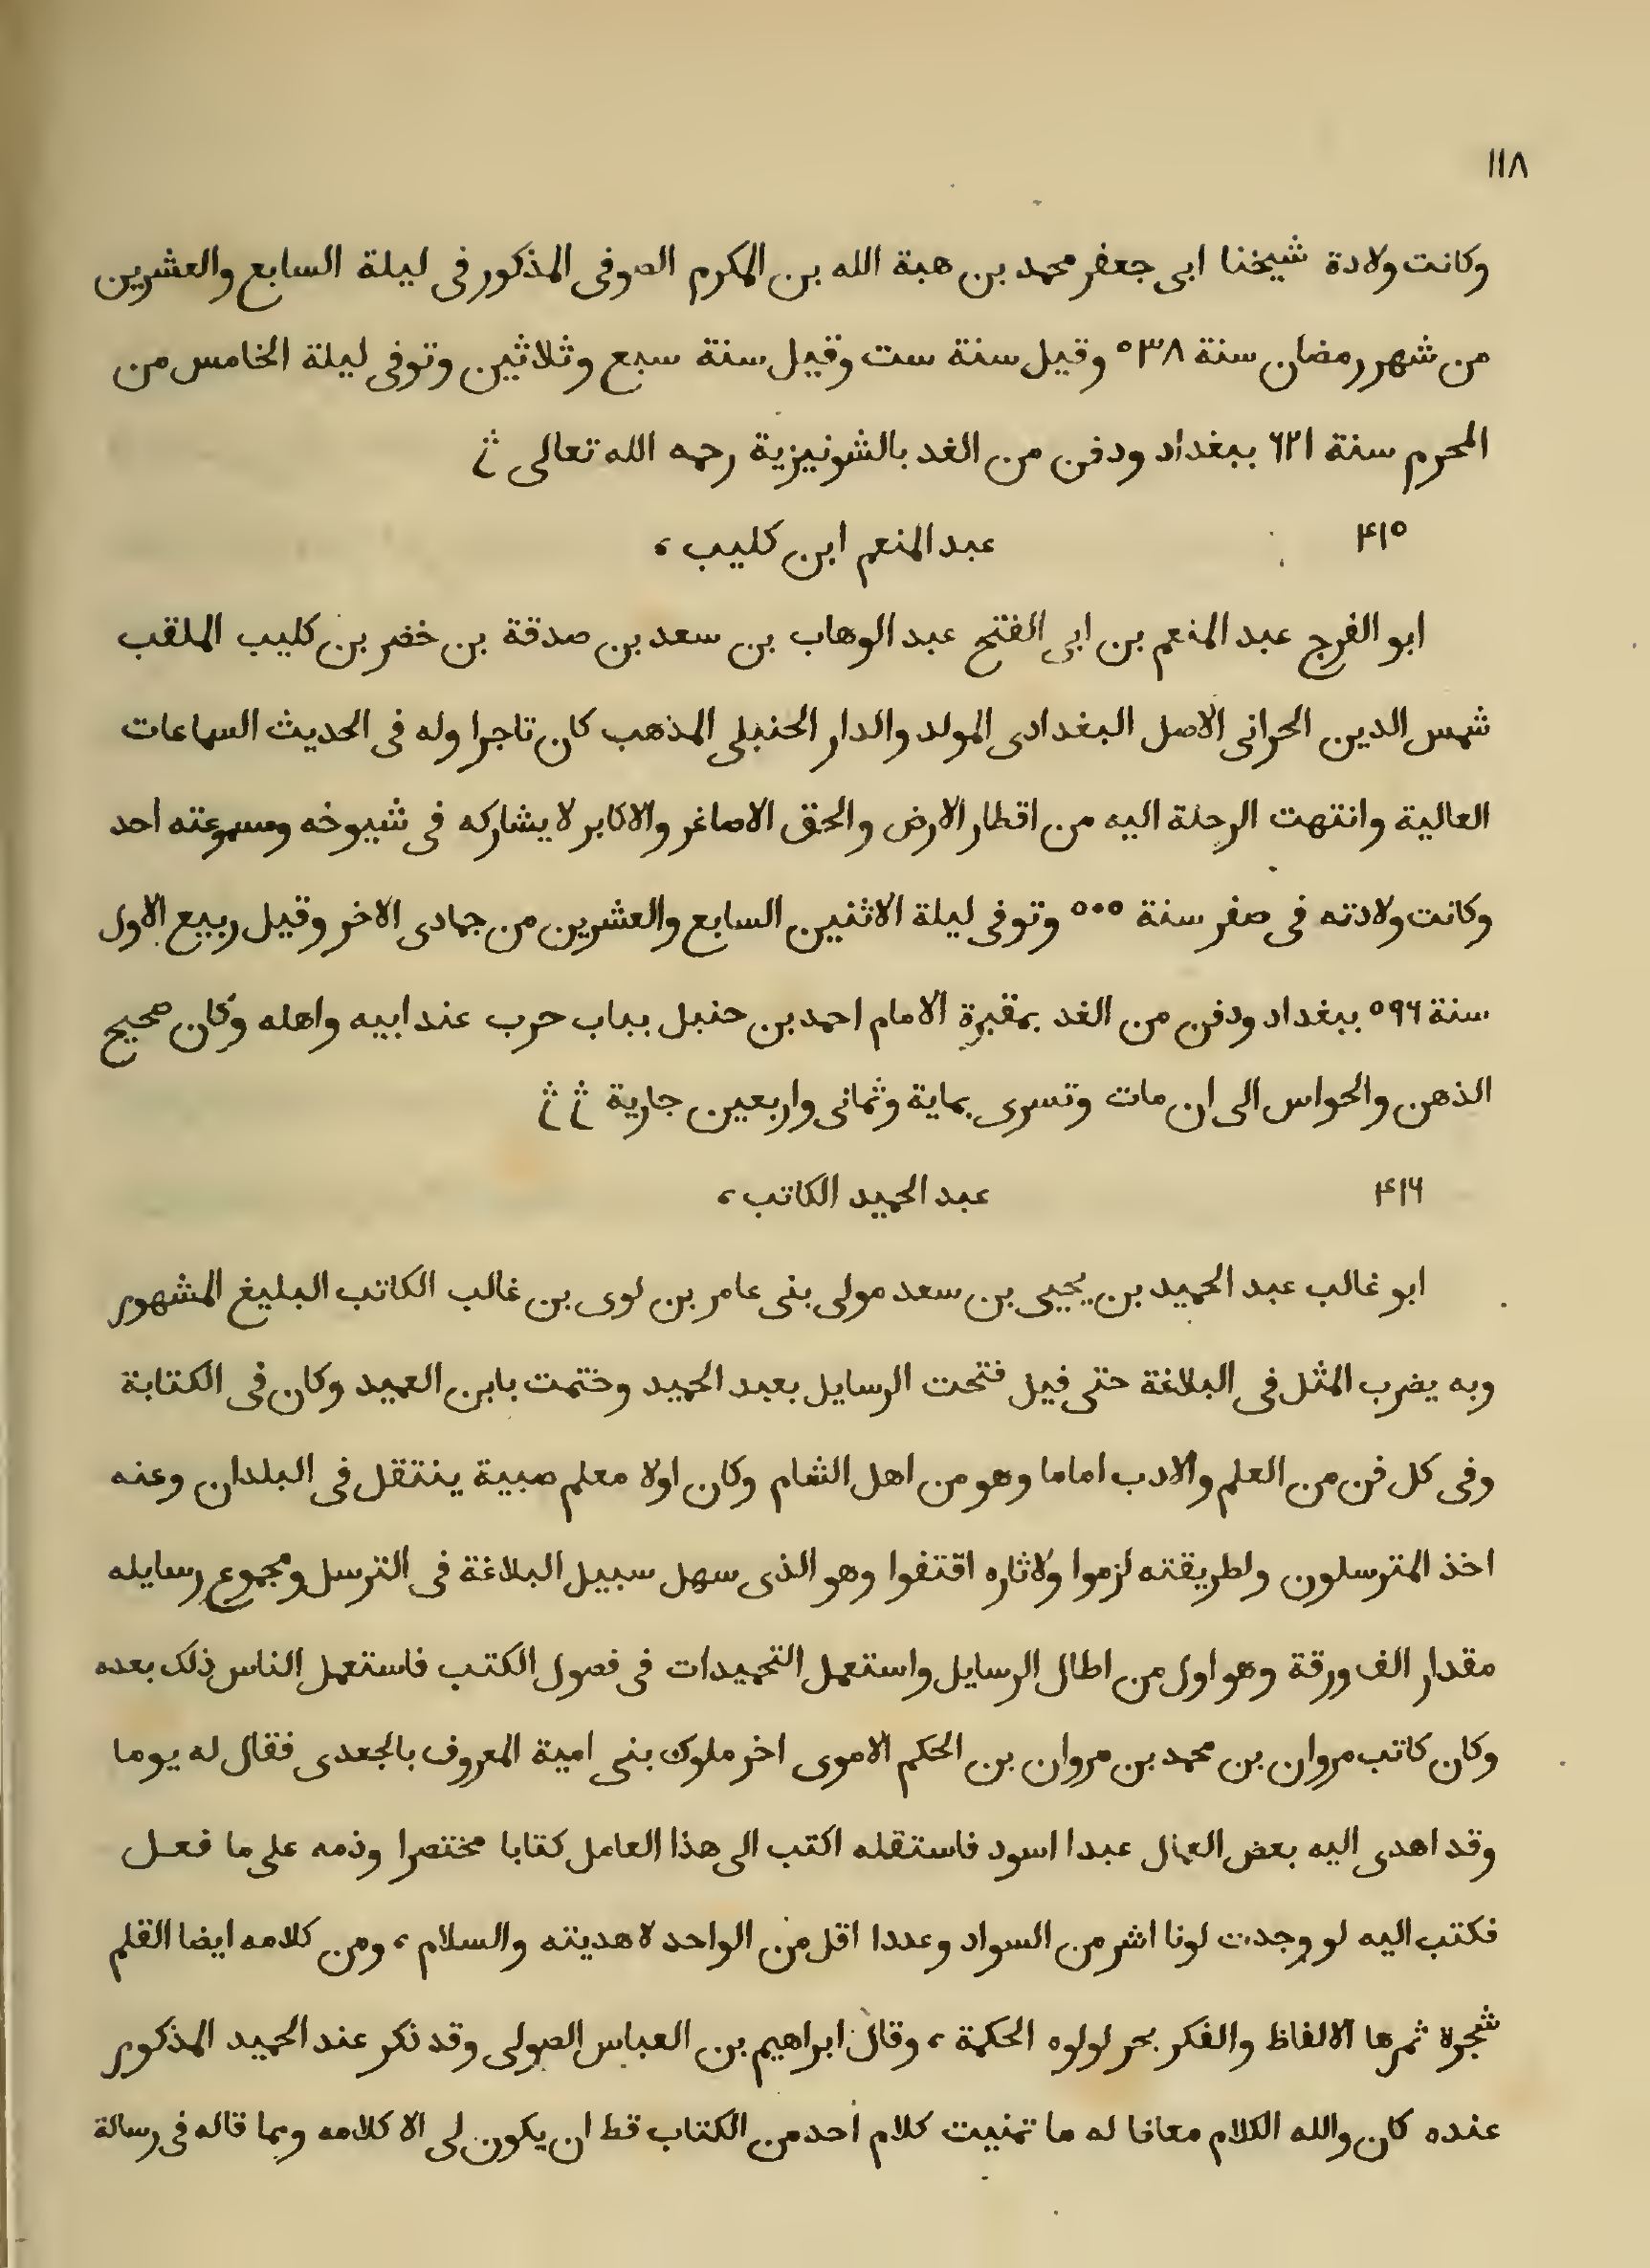 ١١٨
وكانت ولادة شيخنا ابى جعفر محمد بن هبة الله بن المكرم الصوفى المذكور فى ليلة السابع والعشرين
من شهر رمضان سنة ٥٣٨ وقيل سنة ست وقيل سنة سبع وثلاثين وتوفى ليلة الخامس من
المحرم سنة ٦٢١ ببغداد ودفن من الغد بالشونيزية رحمه الله تعالى
٤١٥ عبد المنعم ابن كليب،
ابو الفرج عبد المنعم بن ابى الفتح عبد الوهاب بن سعد بن صدقة بن خضر بن كليب الملقب
شمس الدين الحرانى الاصل البغدادى المولد والدار الحنبلى المذهب كان تاجرا وله فى الحديث السماعات
العالية وانتهت الرحلة اليه من اقطار الارض والحق الاصاغر والاكابر لا يشاركه فى شيوخه ومسموعته احد
وكانت ولادته فى صفر سنة ٥٠٥ وتوفى ليلة الاثنين السابع والعشرين من جمادى الاخر وقيل ربيع الاول
سنة ٥٩٦ ببغداد ودفن من الغد بمقبرة الامام احمد بن حنبل بباب حرب عند ابيه واهله وكان صحيح
الذهن والحواس الى ان مات وتسرى بماية وثمانى واربعين جارية
٤١٦ عبد الحميد الكاتب،
ابو غالب عبد الحميد بن يحيى بن سعد مولى بنى عامر بن لوى بن غالب الكاتب البليغ المشهور
وبه يضرب المثل فى البلاغة حتى فيل فتحت الرسايل بعبد الحميد وختمت بابن العميد وكان فى الكتابة
وفى كل فن من العلم والادب اماما وهو من اهل الشام وكان اولا معلم صبية ينتقل فى البلدان وعنه
اخذ المترسلون ولطريقته لزموا ولاثاره اقتفوا وهو الذى سهل سبيل البلاغة فى الترسل ومجموع رسايله
مقدار الف ورقة وهو اول من اطال الرسايل واستعمل التحميدات فى فصول الكتب فاستعمل الناس ذلك بعده
وكان كاتب مروان بن محمد بن مروان بن الحكم الاموى اخر ملوك بنى امية المعروف بالجعدى فقال له يوما
وقد اهدى اليه بعض العمال عبدا اسود فاستقله اكتب الى هذا العامل كتابا مختصرا وذمه على ما فعل
فكتب اليه لو وجدت لونا اشر من السواد وعددا اقل من الواحد لاهديته والسلام، ومن كلامه ايضا القلم
شجرة ثمرها الالفاظ والفكر بحر لولوه الحكمة، وقال ابراهيم بن العباس الصولى وقد ذكر عند الحميد المذكور
عنده كان والله الكلام معانا له ما تمنيت كلام احد من الكتاب قط ان يكون لى الا كلامه وبما قاله فى رسالة